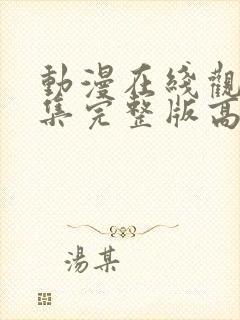 動漫在綫觀
集完整版高
湯某